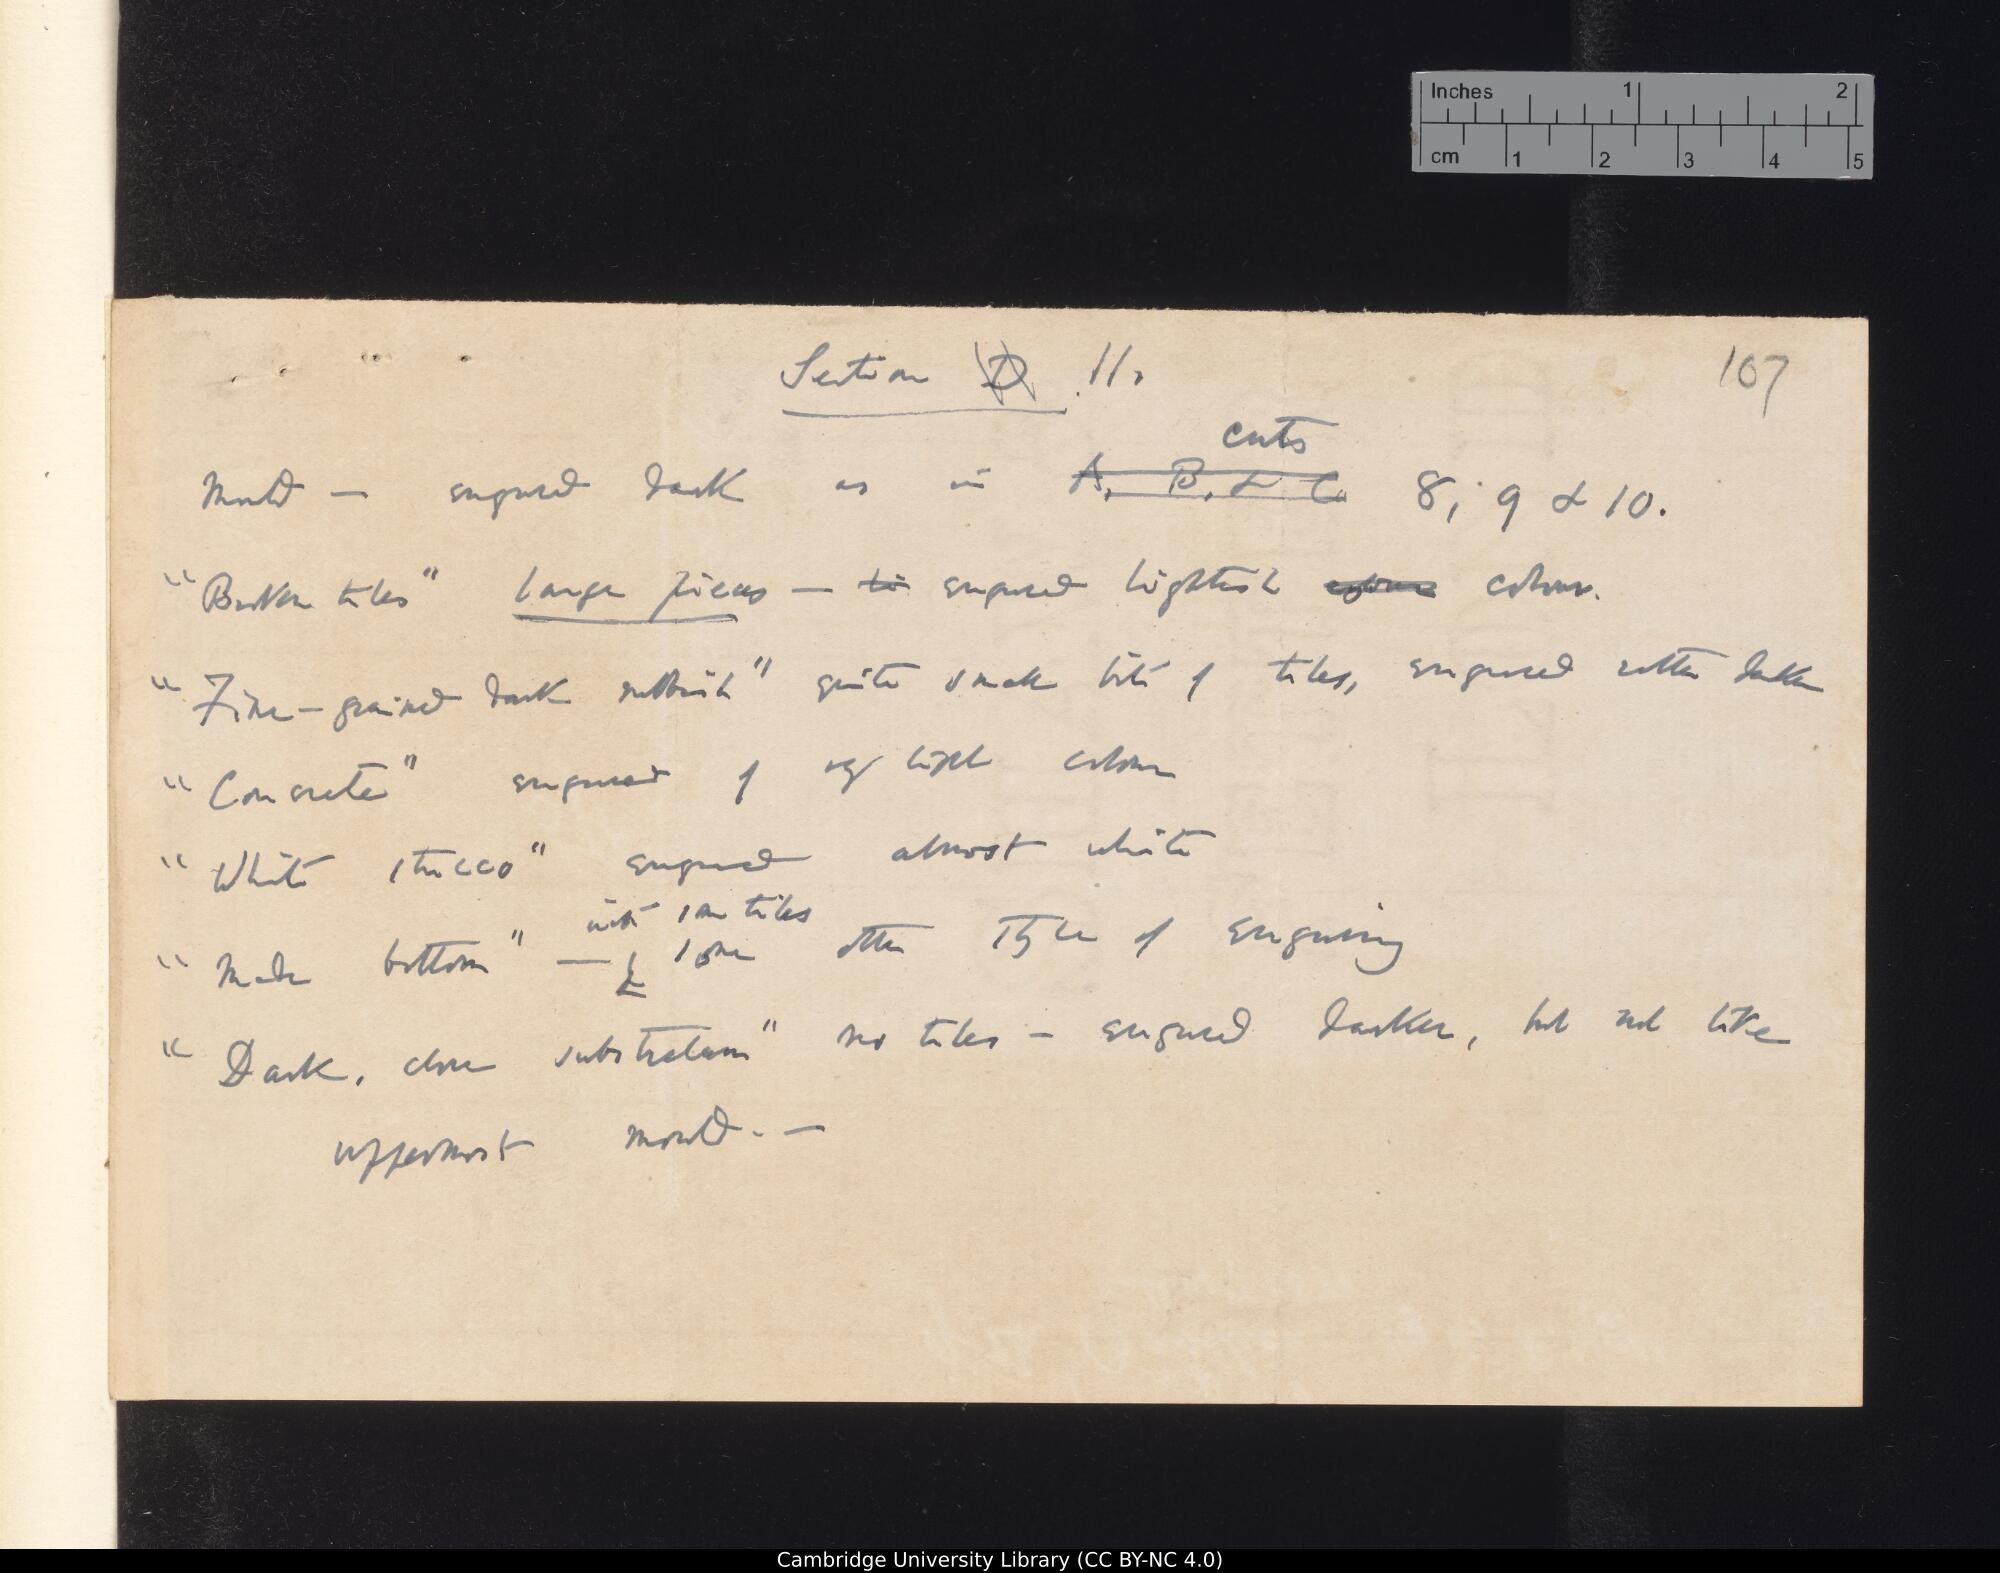 Inches 1 2
cm 1 2 3 4 5
107
Section D 11.
cuts
Mould — engraved dark as in A, B, & C 8, 9 & 10.
"Broken tiles" large pieces — engraved lightish colour colour.
"Fine-grained dark rubbish" quite small bits of tiles, engraved rather darker
"Concrete" engraved of very light colour
"White stucco" engraved almost white
with some tiles
"Made bottom" — & some other style of engraving
"Dark, close substratum" no tiles — engraved darker, but not like
uppermost mould. —
Cambridge University Library (CC BY-NC 4.0)